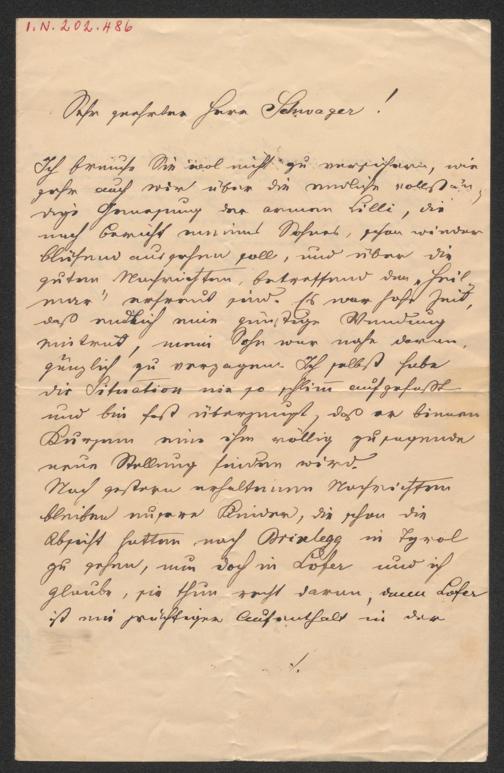 I.N. 202.486
Sehr geehrter Herr Schwager!
Ich brauche Sie wol nicht zu versichern, wie
sehr auch wir über die endliche vollstän-
dige Genesung der armen Lilli, die
nach Bericht meines Sohnes, schon wieder
blühend aussehen soll, und über die
guten Nachrichten, betreffend den "Heil-
mar" erfreut sind. Es war hohe Zeit,
daß endlich eine günstige Wendung
eintrat, mein Sohn war nahe daran,
gänzlich zu verzagen. Ich selbst habe
die Situation nie so schlimm aufgefaßt
und bin fest überzeugt, daß er binnen
Kurzem eine ihm völlig zusagende
neue Stellung finden wird.
Nach gestern erhaltenen Nachrichten
bleiben unsere Kinder, die schon die
Absicht hatten nach Brixlegg in Tyrol
zu gehen, nun doch in Lofer und ich
glaube, sie thun recht daran, denn Lofer
ist ein prächtiger Aufenthalt in der
./.